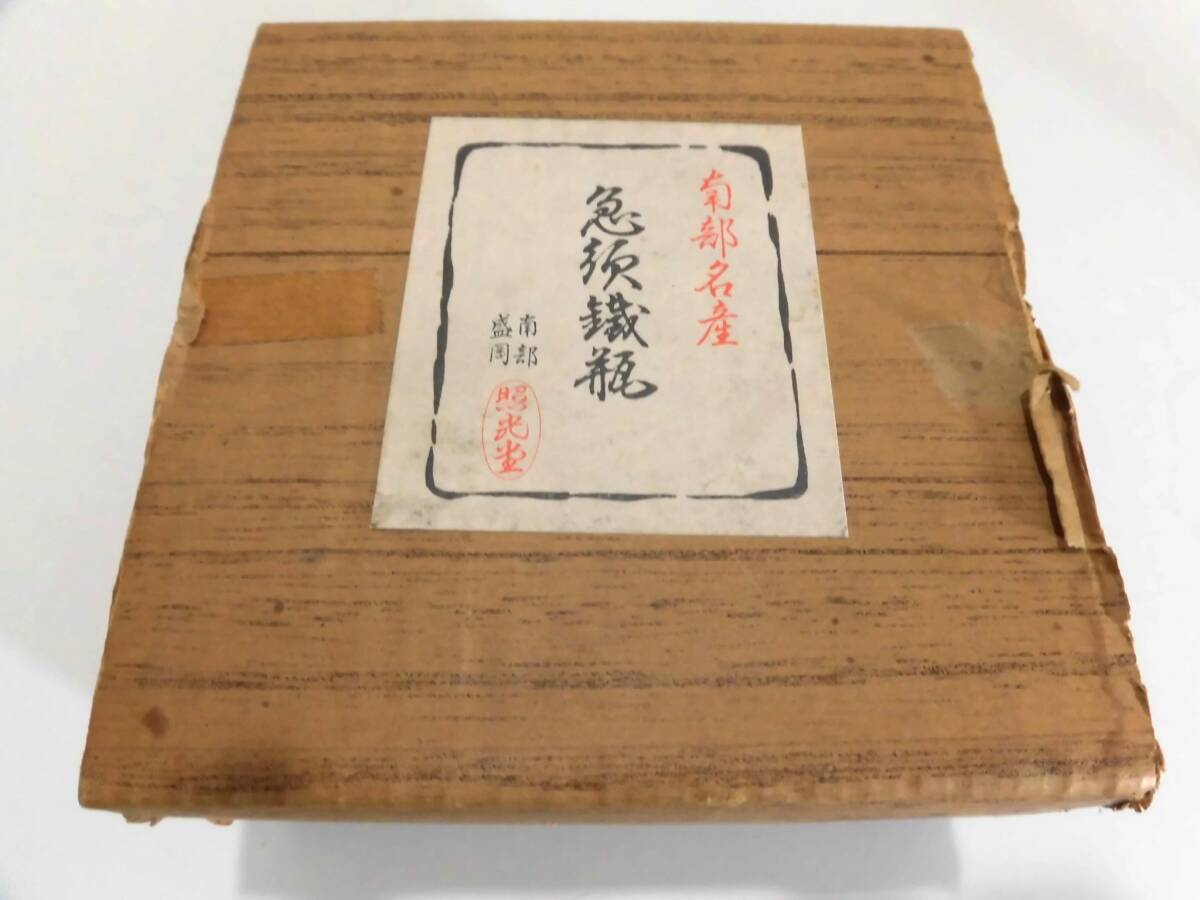 南部名産
急須鐵瓶
南部
盛岡
照光堂